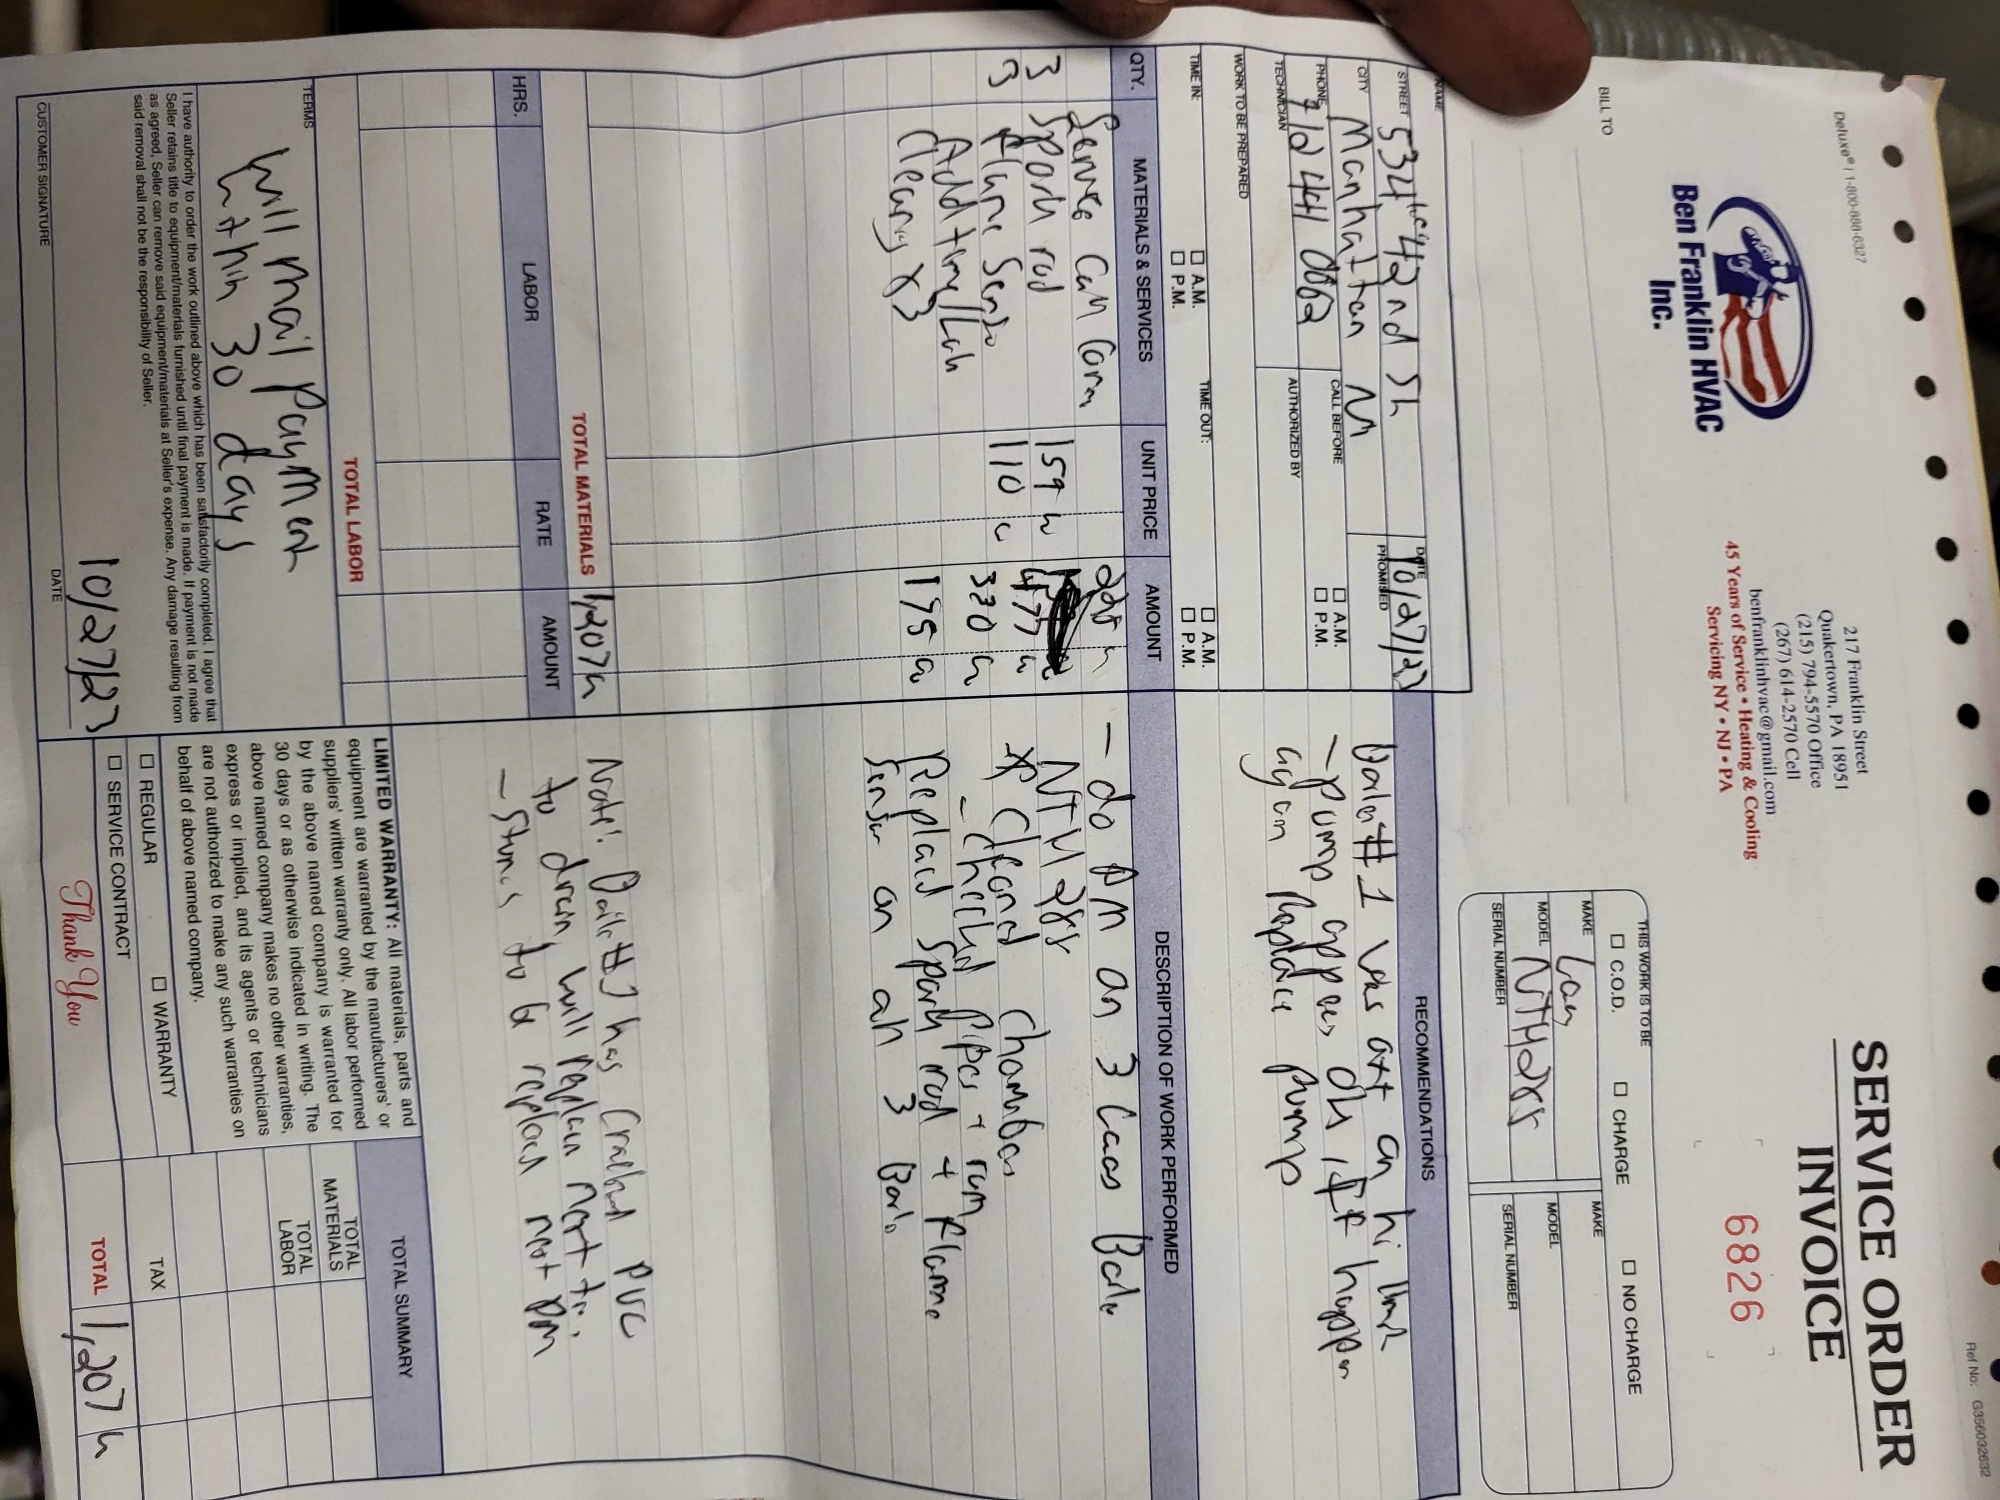 Deluxe® / 1-800-888-6327
Ref No: G356032632
Ben Franklin HVAC
Inc.
217 Franklin Street
Quakertown, PA 18951
(215) 794-5570 Office
(267) 614-2570 Cell
benfranklinhvac@gmail.com
45 Years of Service • Heating & Cooling
Servicing NY • NJ • PA
SERVICE ORDER
INVOICE
6826
BILL TO
THIS WORK IS TO BE
C.O.D. CHARGE NO CHARGE
MAKE MAKE
MODEL NTH285 MODEL
SERIAL NUMBER SERIAL NUMBER
NAME
STREET 534 42nd St
DATE 10/27/23
CITY Manhattan
PROMISED
PHONE
CALL BEFORE
A.M.
P.M.
TECHNICIAN
AUTHORIZED BY
WORK TO BE PREPARED
TIME IN: A.M. P.M.
TIME OUT: A.M. P.M.
RECOMMENDATIONS
#1 was on
- pump if happen
again Replace pump
QTY. MATERIALS & SERVICES UNIT PRICE AMOUNT
Service Call
3 Spark rod 159 477
3 Flame Sensor 110 330
Add time/Lab
Cleaning x3 175
TOTAL MATERIALS 1,207
DESCRIPTION OF WORK PERFORMED
- do PM on 3
NTH 285
* Cleaned Chambers
- Checked Pipes +
Replaced Spark rod + Flame
Sensor on all 3
Note! has Cracked PVC
to drain will replace next
- to be replaced next PM
HRS. LABOR RATE AMOUNT
TOTAL LABOR
TERMS
Will mail payment
within 30 days
I have authority to order the work outlined above which has been satisfactorily completed. I agree that
Seller retains title to equipment/materials furnished until final payment is made. If payment is not made
as agreed, Seller can remove said equipment/materials at Seller's expense. Any damage resulting from
said removal shall not be the responsibility of Seller.
CUSTOMER SIGNATURE
DATE 10/27/23
LIMITED WARRANTY: All materials, parts and
equipment are warranted by the manufacturers' or
suppliers' written warranty only. All labor performed
by the above named company is warranted for
30 days or as otherwise indicated in writing. The
above named company makes no other warranties,
express or implied, and its agents or technicians
are not authorized to make any such warranties on
behalf of above named company.
REGULAR WARRANTY
SERVICE CONTRACT
Thank You
TOTAL SUMMARY
TOTAL
MATERIALS
TOTAL
LABOR
TAX
TOTAL 1,207